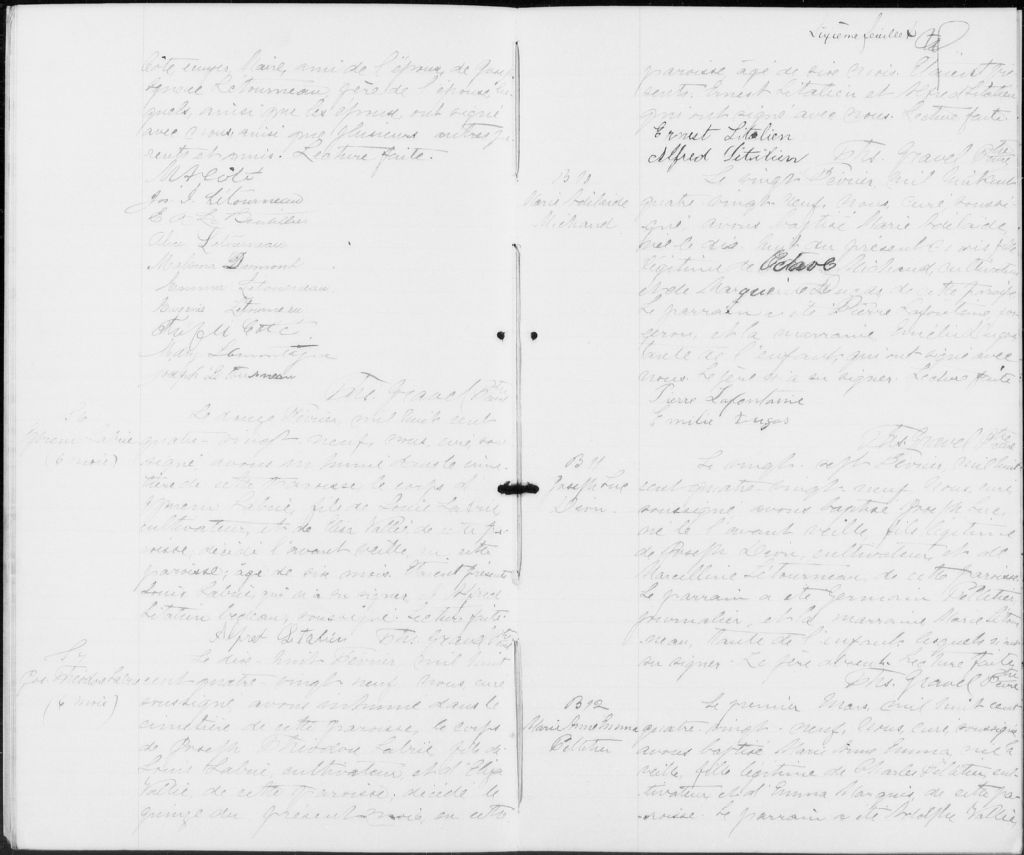 Côté, maire, ami de l'époux, de Jos
Letourneau, père de l'épouse
quels, ainsi que les époux, ont signé
avec nous ainsi que plusieurs autres pa-
rents et amis. Lecture faite.
Jos. J. Létourneau
Alice Letourneau
Dumont
Emma Letourneau
Eugénie Letourneau
Mary Lamontagne
Joseph Letourneau
Ths. Gravel Ptre
S 6
Labrie
(6 mois)
Le douze Février, mil huit cent
quatre-vingt neuf, nous, curé sous-
signé avons inhumé dans le cime-
tière de cette paroisse le corps d'
Labrie, fils de Louis Labrie
cultivateur, et de Vallée de cette pa-
roisse, décédé l'avant veille, en cette
paroisse, âgé de six mois. Etaient présents
Louis Labrie qui n'a su signer et Alfred
Litalien bedeau, soussigné. Lecture faite.
Alfret Litalien Ths. Gravel Ptre
S 7
Jos. Théodore Labrie
(6 mois)
Le dix-huit Février, mil huit
cent quatre-vingt neuf, nous, curé
soussigné avons inhumé dans le
cimetière de cette paroisse, le corps
de Joseph Théodore Labrie fils de
Louis Labrie, cultivateur, et d'Eliza
Vallée de cette paroisse, décédé le
quinze du présent mois, en cette
Sixième feuillet
paroisse âgé de six mois. Etaient pré-
sents Ernest Litalien et Alfred Litalien
qui ont signé avec nous. Lecture faite.
Ernest Litalien
Alfred Litalien Ths. Gravel Ptre
B 10
Marie Adélaide
Michaud
Le vingt Février, mil huit cent
quatre-vingt neuf, nous, curé soussi-
gné avons baptisé Marie Adélaide
née le dix-huit du présent mois, fille
légitime de Octave Michaud, cultivateur
et de Marguerite de cette paroisse
Le parrain a été Pierre Lafontaine, for-
geron, et la marraine Emélie Dugas
tante de l'enfant, qui ont signé avec
nous. Le père n'a su signer. Lecture faite.
Pierre Lafontaine
Emilie Dugas
Ths. Gravel Ptre
B 11
Joseph Luc
Dion
Le vingt-sept Février, mil huit
cent quatre-vingt neuf, nous curé
soussigné, avons baptisé Joseph Luc,
né le l'avant veille, fils légitime
de Joseph Dion, cultivateur et de
Marcelline Létourneau de cette paroisse
Le parrain a été Germain Pelletier
journalier, et la marraine Marie Létour-
neau, tante de l'enfant lesquels n'ont
su signer. Le père absent. Lecture faite.
Ths. Gravel Ptre
B 12
Marie Anne Emma
Pelletier
Le premier Mars, mil huit cent
quatre-vingt-neuf, nous, curé soussigné
avons baptisé Marie Anne Emma, née la
veille, fille légitime de Charles Pelletier, cul-
tivateur et d'Emma Marquis, de cette pa-
roisse. Le parrain a été Adolphe Vallée